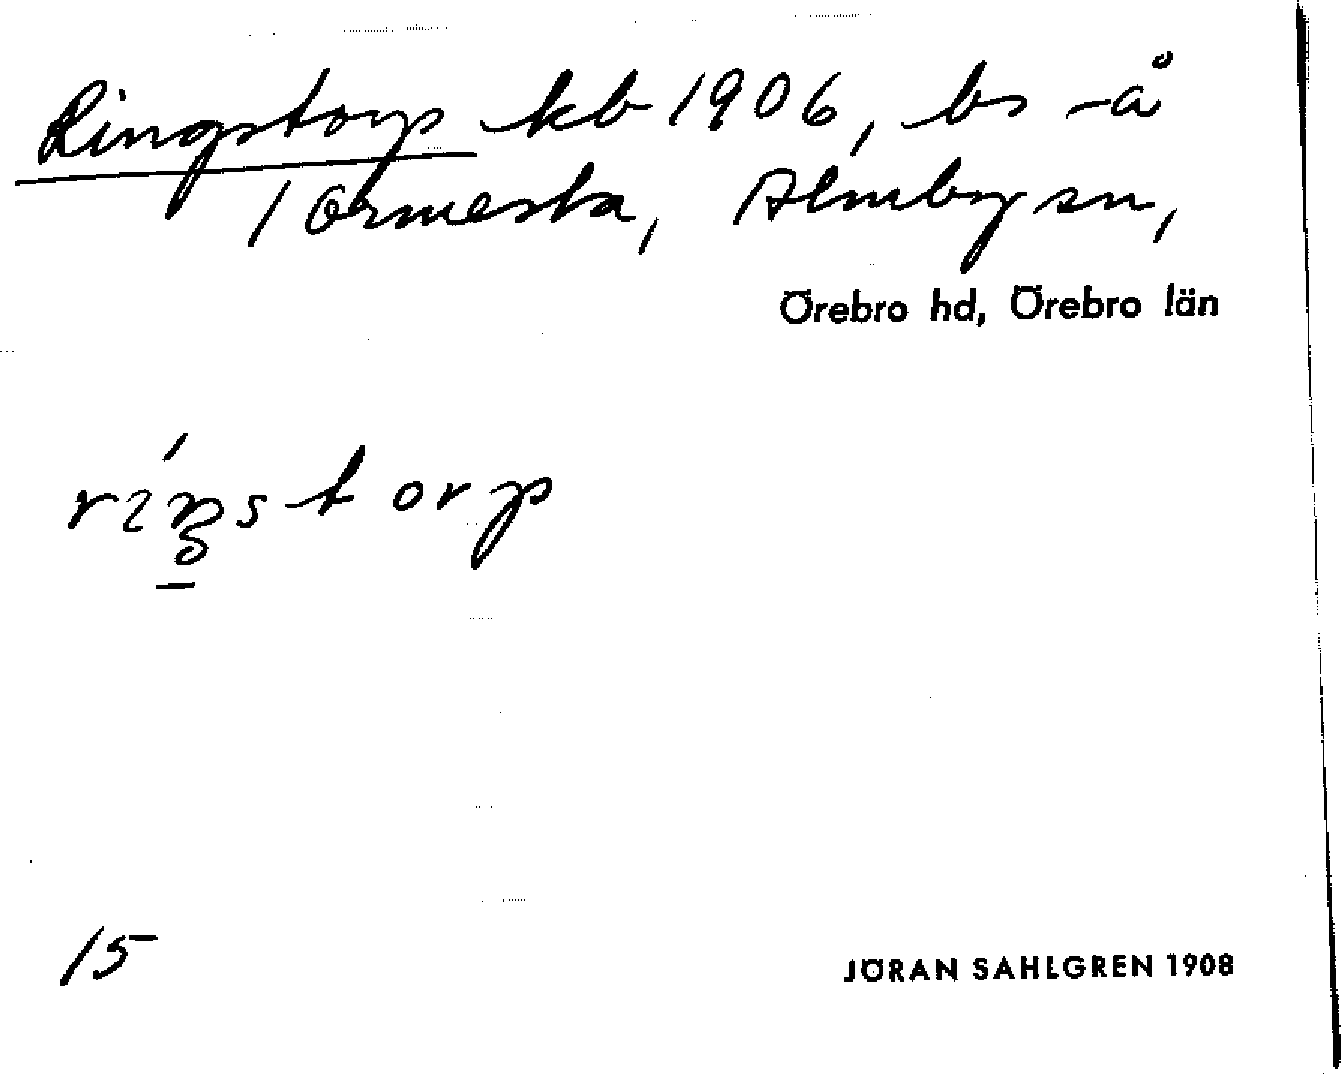 Ringstorp kb 1906, bs -å
1 Ormesta, Almby sn,
Örebro hd, Örebro län
riŋstorp
15
JÖRAN SAHLGREN 1908